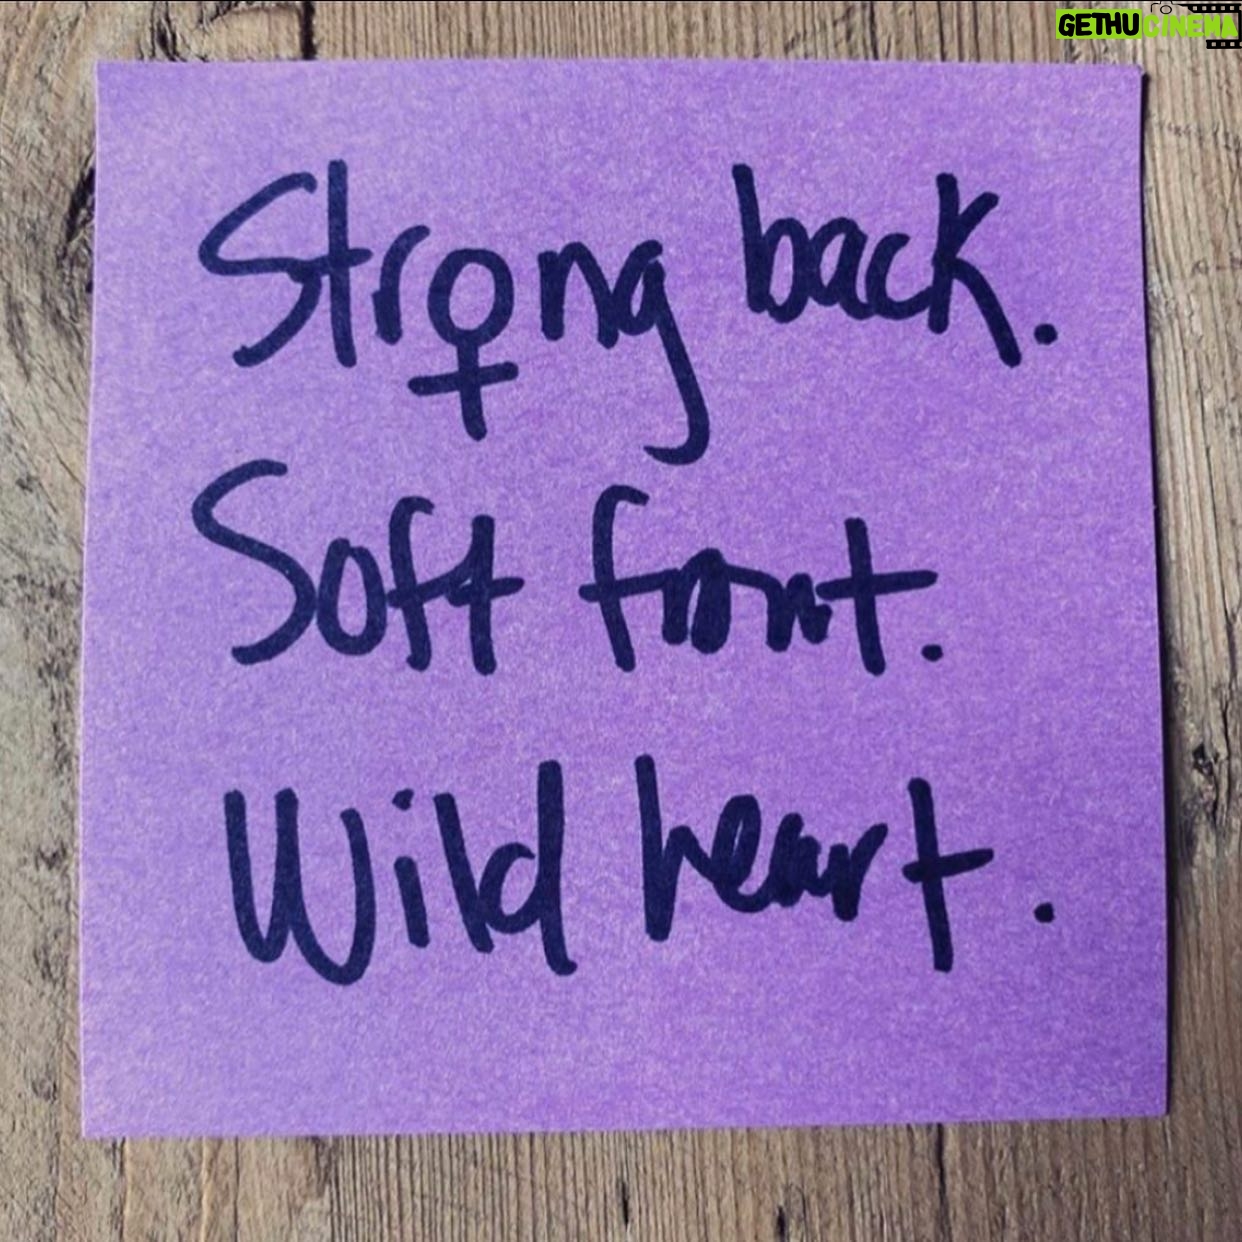 GETHUCINEMA
Str♀ng back.
Soft front.
Wild heart.